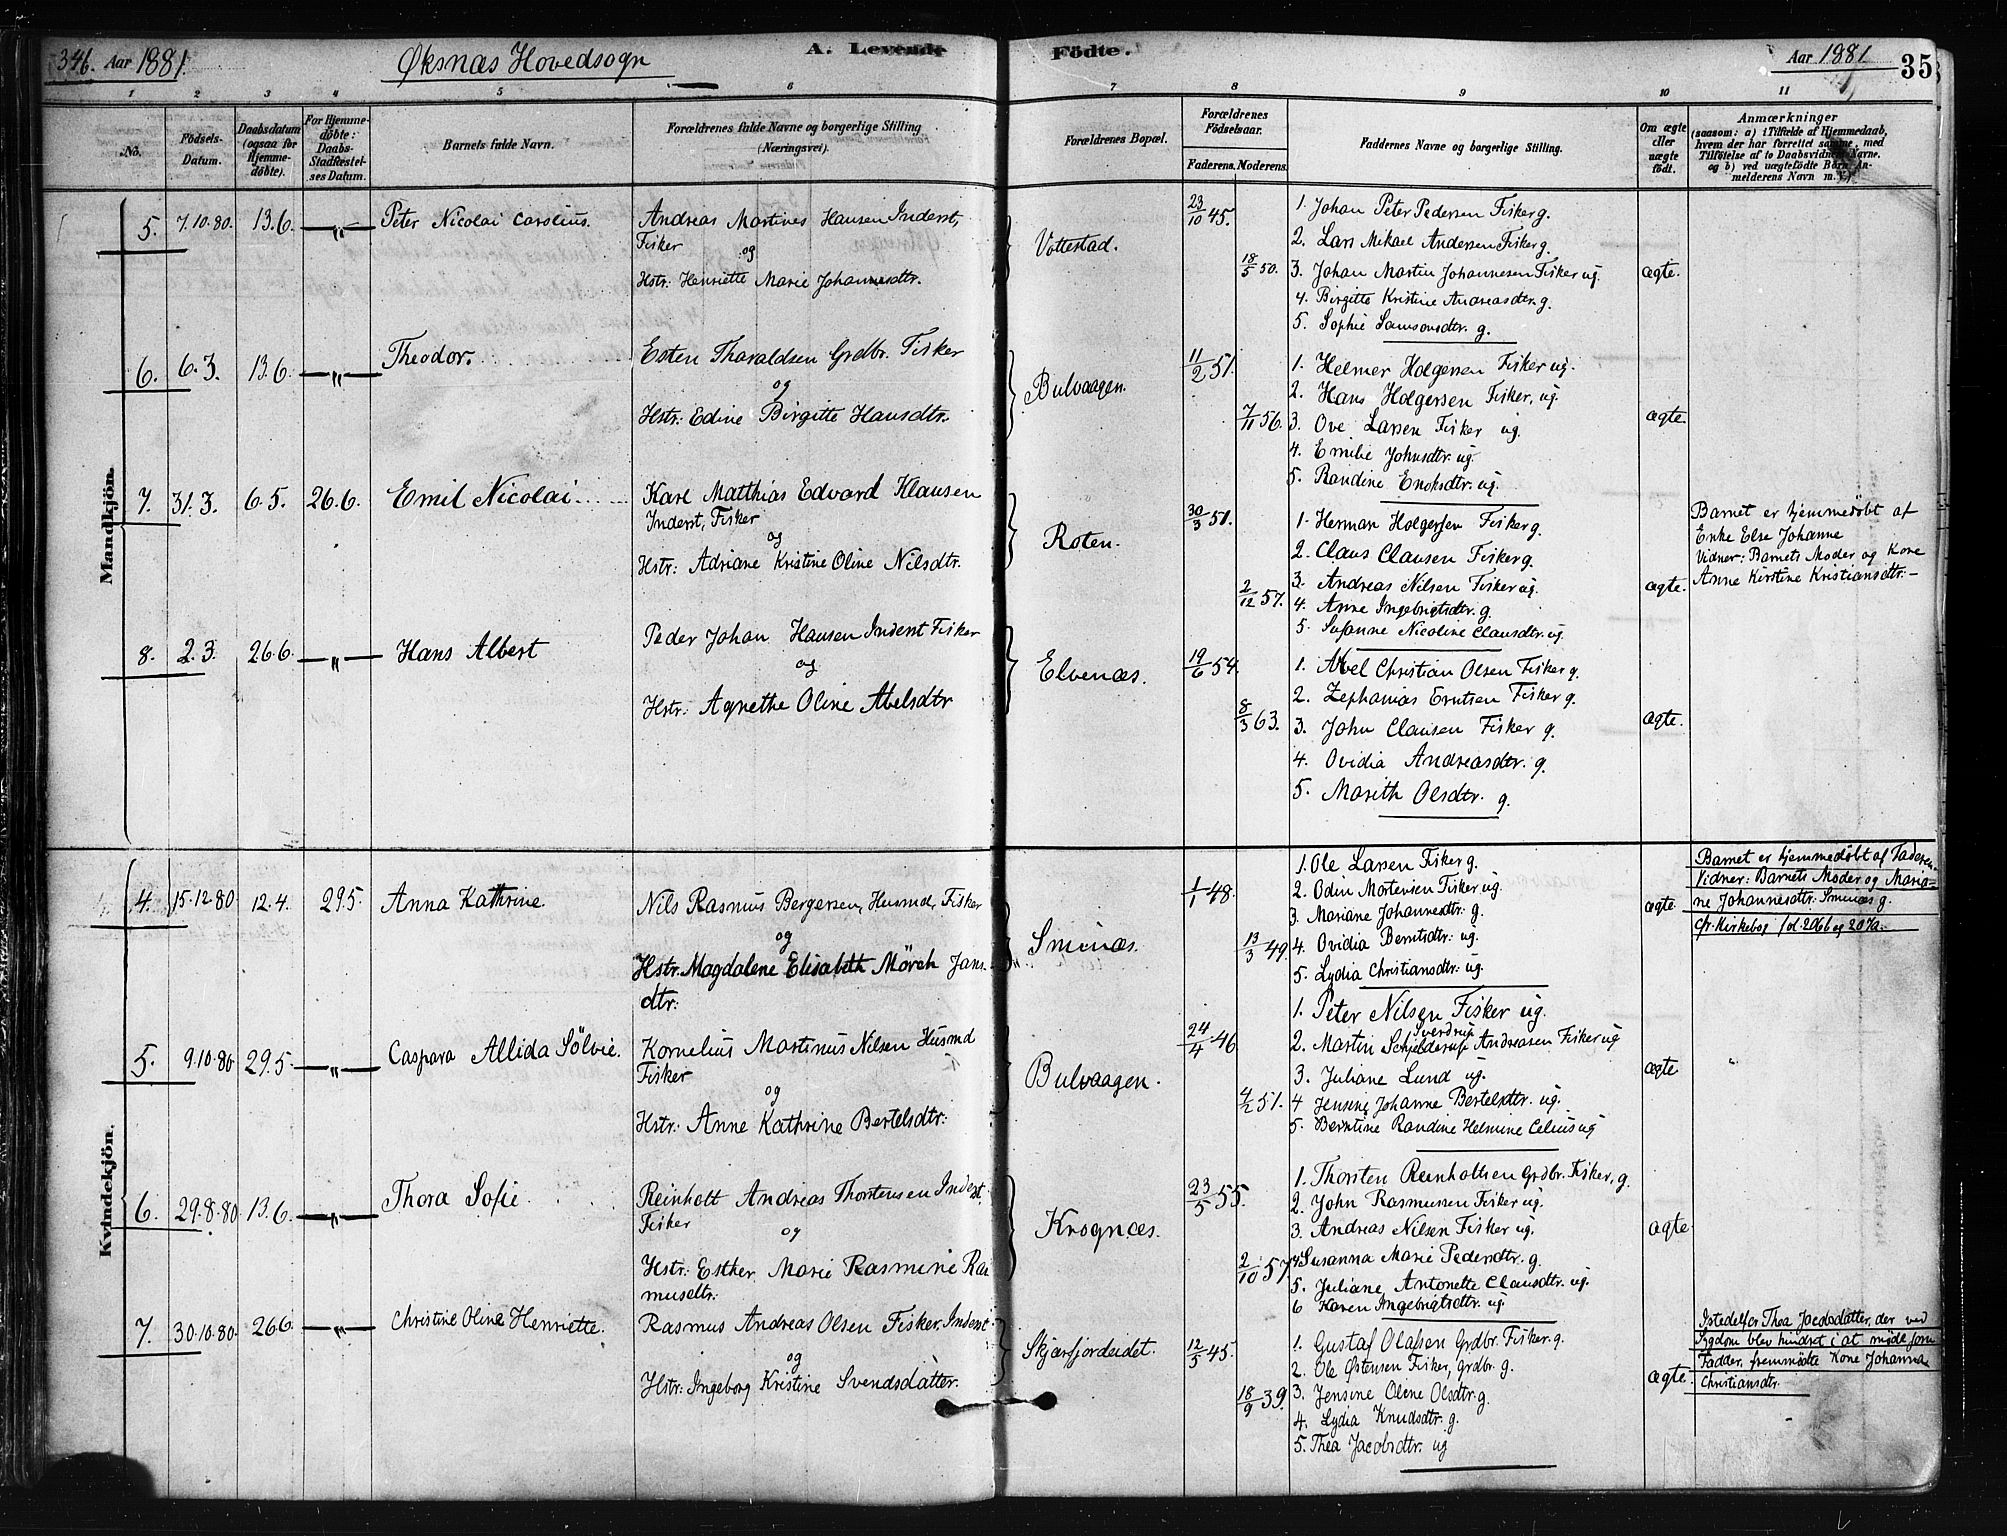 346. Aar 1881.
Øksnæs Hovedsogn
A. Levende Födte.
Aar 1881
35
1 2 3 4 5 6 7 8 9 10 11
No.
Födsels-
Datum.
Daabsdatum
(ogsaa for
Hjemme-
döbte).
For Hjemme-
döbte:
Daabs-
Stadfæstel-
ses Datum.
Barnets fulde Navn.
Forældrenes fulde Navne og borgerlige Stilling
(Næringsvei).
Forældrenes Bopæl.
Forældrenes
Födselsaar.
Faderens. Moderens.
Faddernes Navne og borgerlige Stilling.
Om ægte
eller
uægte
født.
Anmærkninger
(saasom: a) i Tilfælde af Hjemmedaab,
hvem der har forrettet samme, med
Tilföielse af to Daabsvidners Navne.
og b) ved uægtefödte Börn An-
melderens Navn m. V.)
Mandkjön.
5. 7.10.80. 13.6. —"— Peter Nicolai Carolius.
Andreas Martines Hansen Inderst,
Fisker
og
Hstr: Henriette Marie Johannesdtr.
Vottestad.
23/10 45.
18/5 50.
1. Johan Peter Pedersen Fisker g.
2. Lars Mikael Andersen Fisker g.
3. Johan Martin Johannesen Fisker ug.
4. Birgitte Kristine Andreasdtr. g.
5. Sophie Samsonsdtr. g.
ægte.
6. 6.3. 13.6. —"— Theodor.
Esten Tharaldsen Grdbr. Fisker
og
Hstr: Edine Birgitte Hansdtr.
Bulvaagen.
11/2 51.
7/11 56.
1. Helmer Holgersen Fisker ug.
2. Hans Holgersen Fisker, ug.
3. Ove Larsen Fisker ug.
4. Emilie Johnsdtr. ug.
5. Randine Enoksdtr. ug.
ægte.
7. 31.3. 6.5. 26.6. Emil Nicolai
Karl Matthias Edvard Klausen
Inderst, Fisker
og
Hstr: Adriane Kristine Oline Nilsdtr.
Roten.
30/3 51.
2/12 57.
1. Herman Holgersen Fisker g.
2. Claus Clausen Fisker g.
3. Andreas Nilsen Fisker ug.
4. Anne Ingebrigtsdtr. g.
5. Susanne Nicoline Clausdtr. ug.
ægte.
Barnet er hjemmedøbt af
Enke Else Johanne
Vidner: Barnets Moder og Kone
Anne Kirstine Kristiansdtr: –
8. 2.3. 26.6. —"— Hans Albert
Peder Johan Hansen Inderst Fisker
og
Hstr: Agnethe Oline Abelsdtr
Elvenæs.
19/6 54.
8/3 63.
1. Abel Christian Olsen Fisker g.
2. Zephanias Erntsen Fisker g.
3. John Clausen Fisker g.
4. Ovidia Andreasdtr. g.
5. Marith Olsdtr. g.
ægte.
Kvindekjön.
4. 15.12.80 12.4. 29.5. Anna Kathrine.
Nils Rasmus Bergersen, Husmd, Fisker
og
Hstr. Magdalene Elisabeth Mörch Jans
dtr:
Smines.
1/1 48.
13/3 49.
1. Ole Larsen Fisker g.
2. Odin Mortensen Fisker ug.
3. Mariane Johannesdtr: g.
4. Ovidia Berntsdtr: ug.
5. Lydia Christiansdtr: ug.
ægte
Barnet er hjemmedøbt af Faderen.
Vidner: Barnets Moder og Maria-
ne Johannesdtr: Smines g.
cfr. Kirkebog fol. 206b og 207a.
5. 9.10.80 29.5. —"— Caspara Allida Sölvie.
Kornelius Martinus Nilsen Husmd
Fisker
og
Hstr: Anne Kathrine Bertelsdtr:
Bulvaagen.
24/4 46
4/2 51.
1. Peter Nilsen Fisker ug.
Sverdrup
2. Martin Schjelderup Andreasen Fisker ug
3. Juliane Lund ug.
4 Jensine Johanne Bertelsdtr. ug.
5. Berntine Randine Helmine Celius ug
ægte
6. 29.8.80. 13.6. —"— Thora Sofie
Reinholt Andreas Thorstensen Inderst
Fisker
og
Hstr: Esther Marie Rasmine Ras
musdtr:
Krognæs.
23/5 55.
2/10 57
1. Thorsten Reinholtsen Grdbr. Fisker, g.
2. John Rasmussen Fisker ug.
3. Andreas Nilsen Fisker ug.
4 Susanna Marie Pedersdtr. g.
5. Juliane Antonette Clausdtr. ug.
6 Karen Ingebrigtsdtr. ug.
ægte.
7. 30.10.80 26.6 —"— Christine Oline Henriette.
Rasmus Andreas Olsen Fisker, Inderst
og
Hstr: Ingeborg Kristine Svendsdatter.
Skjærfjordeidet.
12/5 45.
18/9 39.
1. Gustaf Olafsen Grdbr. Fisker. g.
2. Ole Østensen Fisker, Grdbr. g.
3. Jensine Oline Olsdtr. g
4. Lydia Knudsdtr. g.
5. Thea Jacobsdtr. ug
ægte.
Istedetfor Thea Jacobsdatter, der ved
Sygdom blev hindret i at møde som
Fadder, fremmødte Kone Johanna
Christiansdtr.